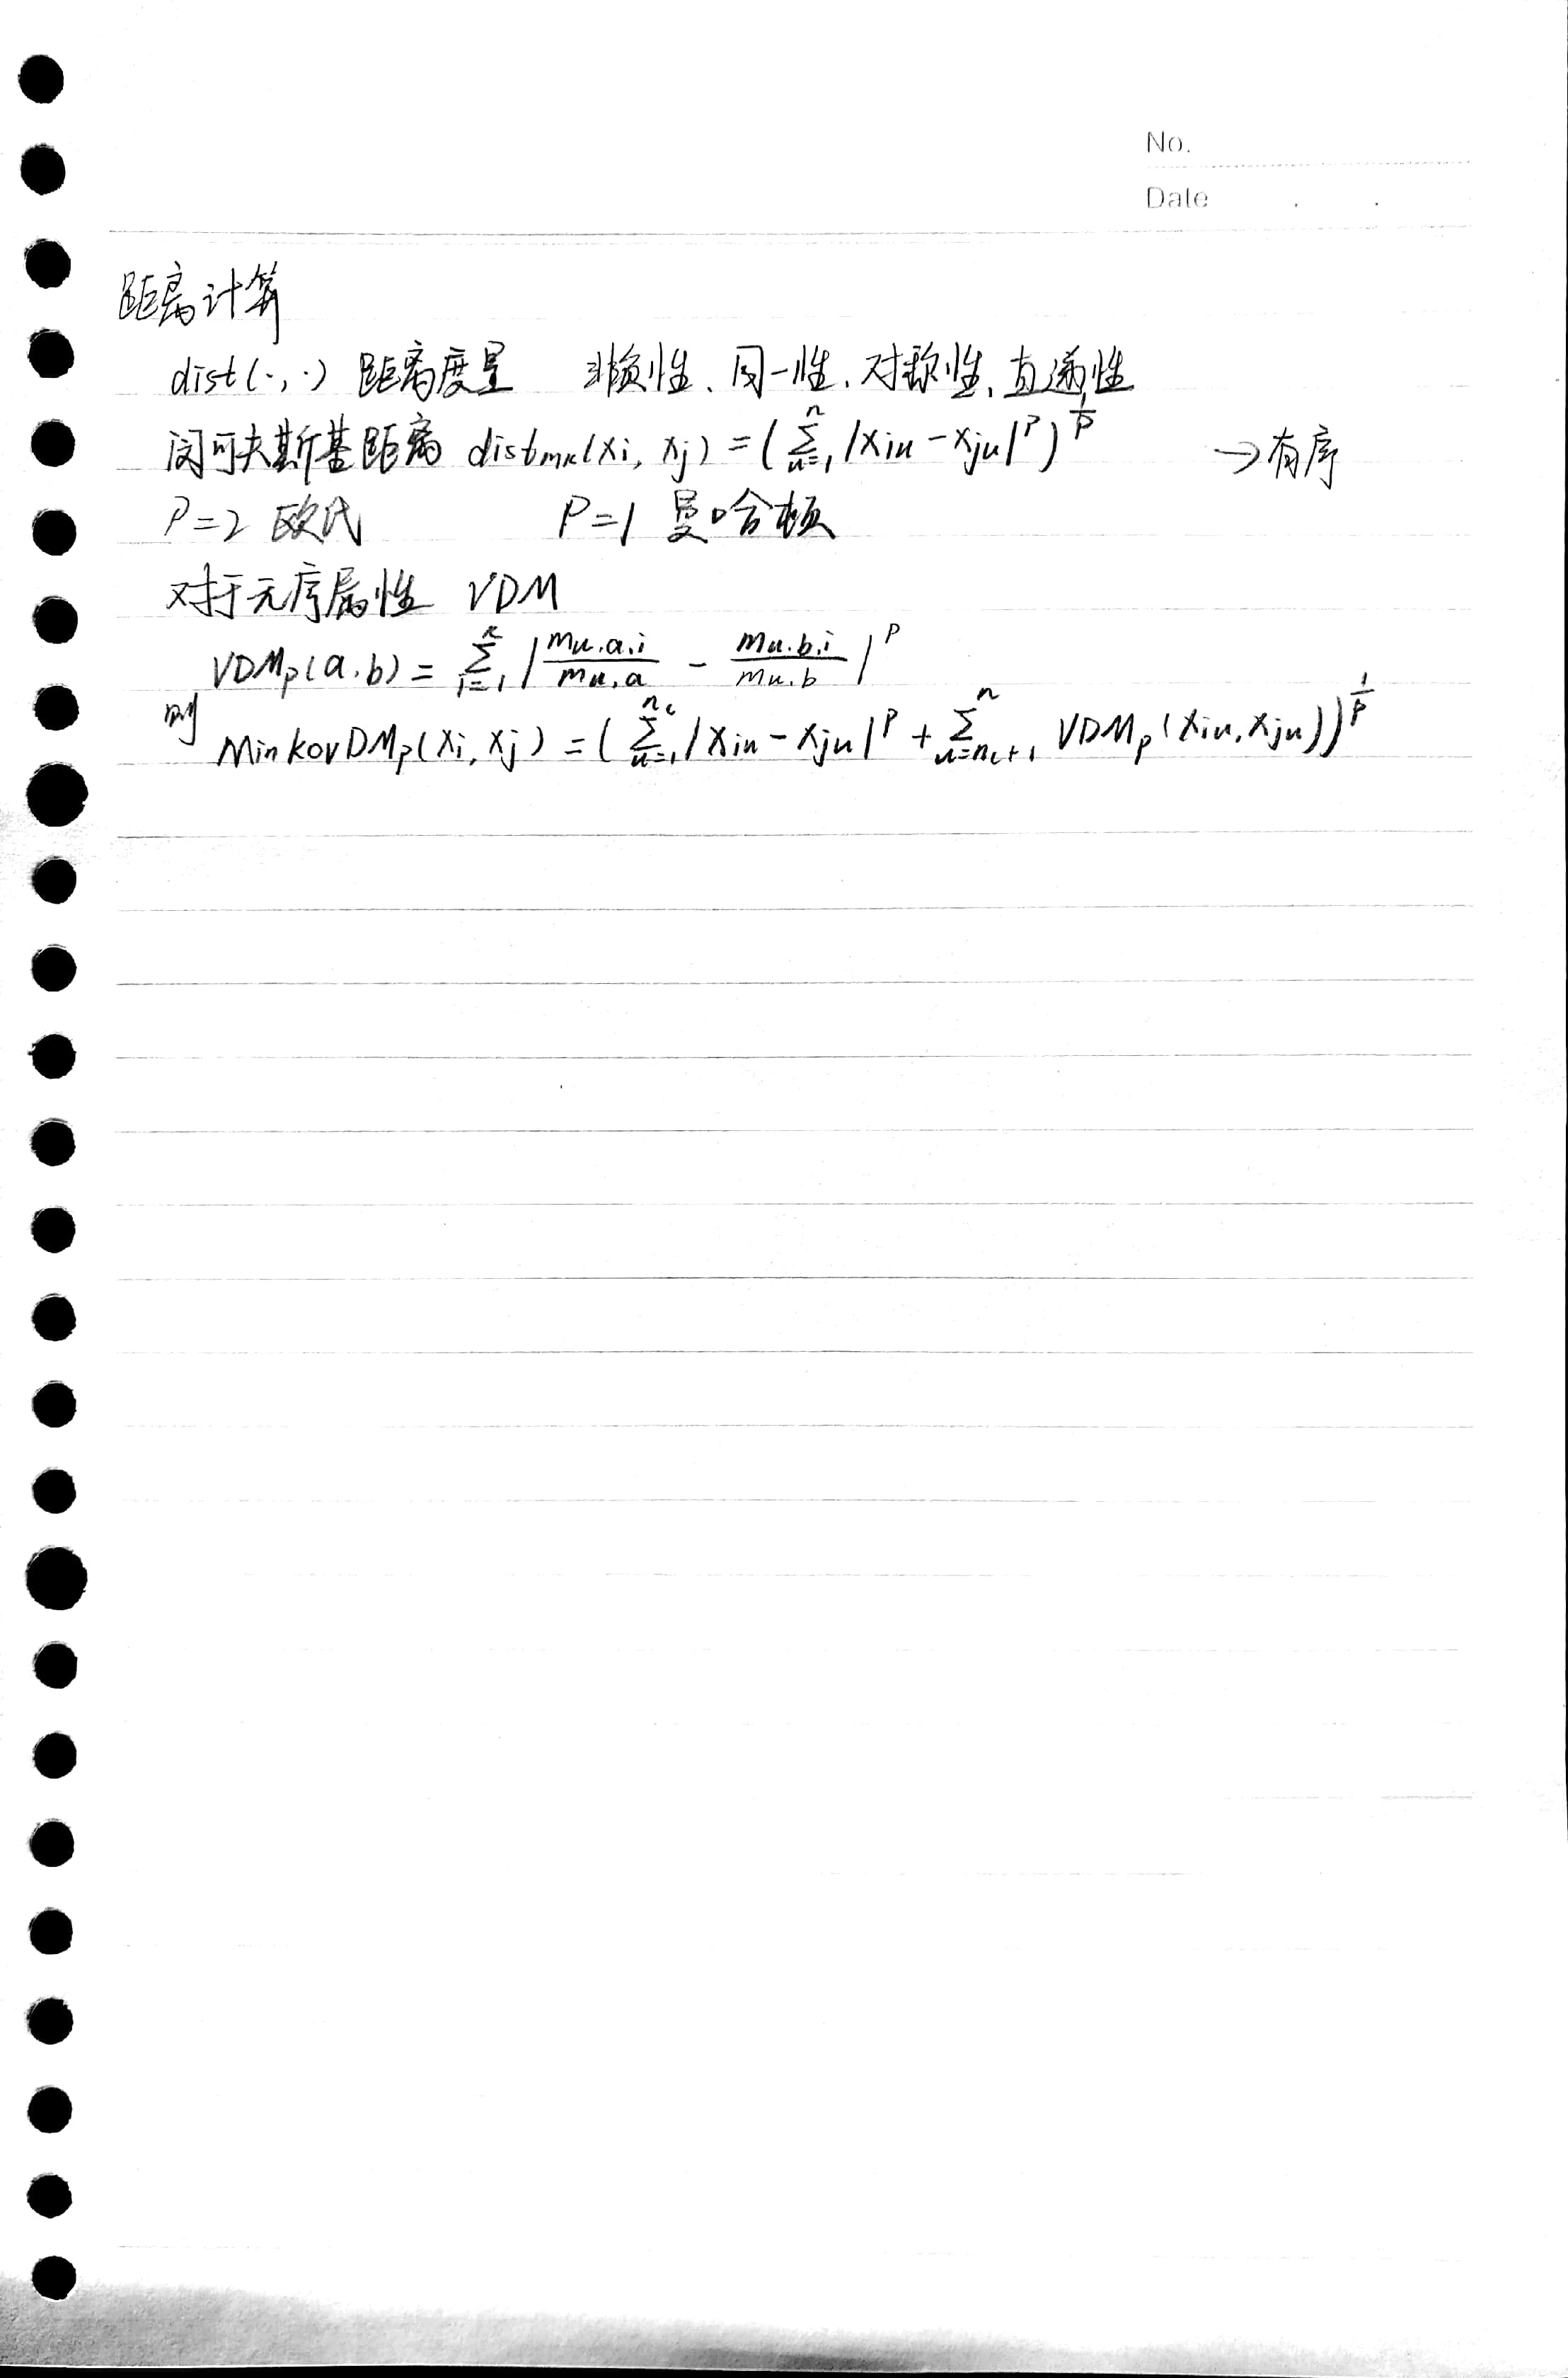 No.
Date . .
距离计算
dist(·,·) 距离度量 非负性、同一性、对称性、直递性
闵可夫斯基距离 dist_mk(x_i, x_j) = (∑_{u=1}^{n} |x_iu - x_ju|^p)^{1/p} → 有序
P=2 欧氏 P=1 曼哈顿
对于无序属性 VDM
VDM_p(a,b) = ∑_{i=1}^{k} |m_{u,a,i}/m_{u,a} - m_{u,b,i}/m_{u,b}|^p
则 MinkovDM_p(x_i, x_j) = (∑_{u=1}^{n_c} |x_iu - x_ju|^p + ∑_{u=n_c+1}^{n} VDM_p(x_iu, x_ju))^{1/p}